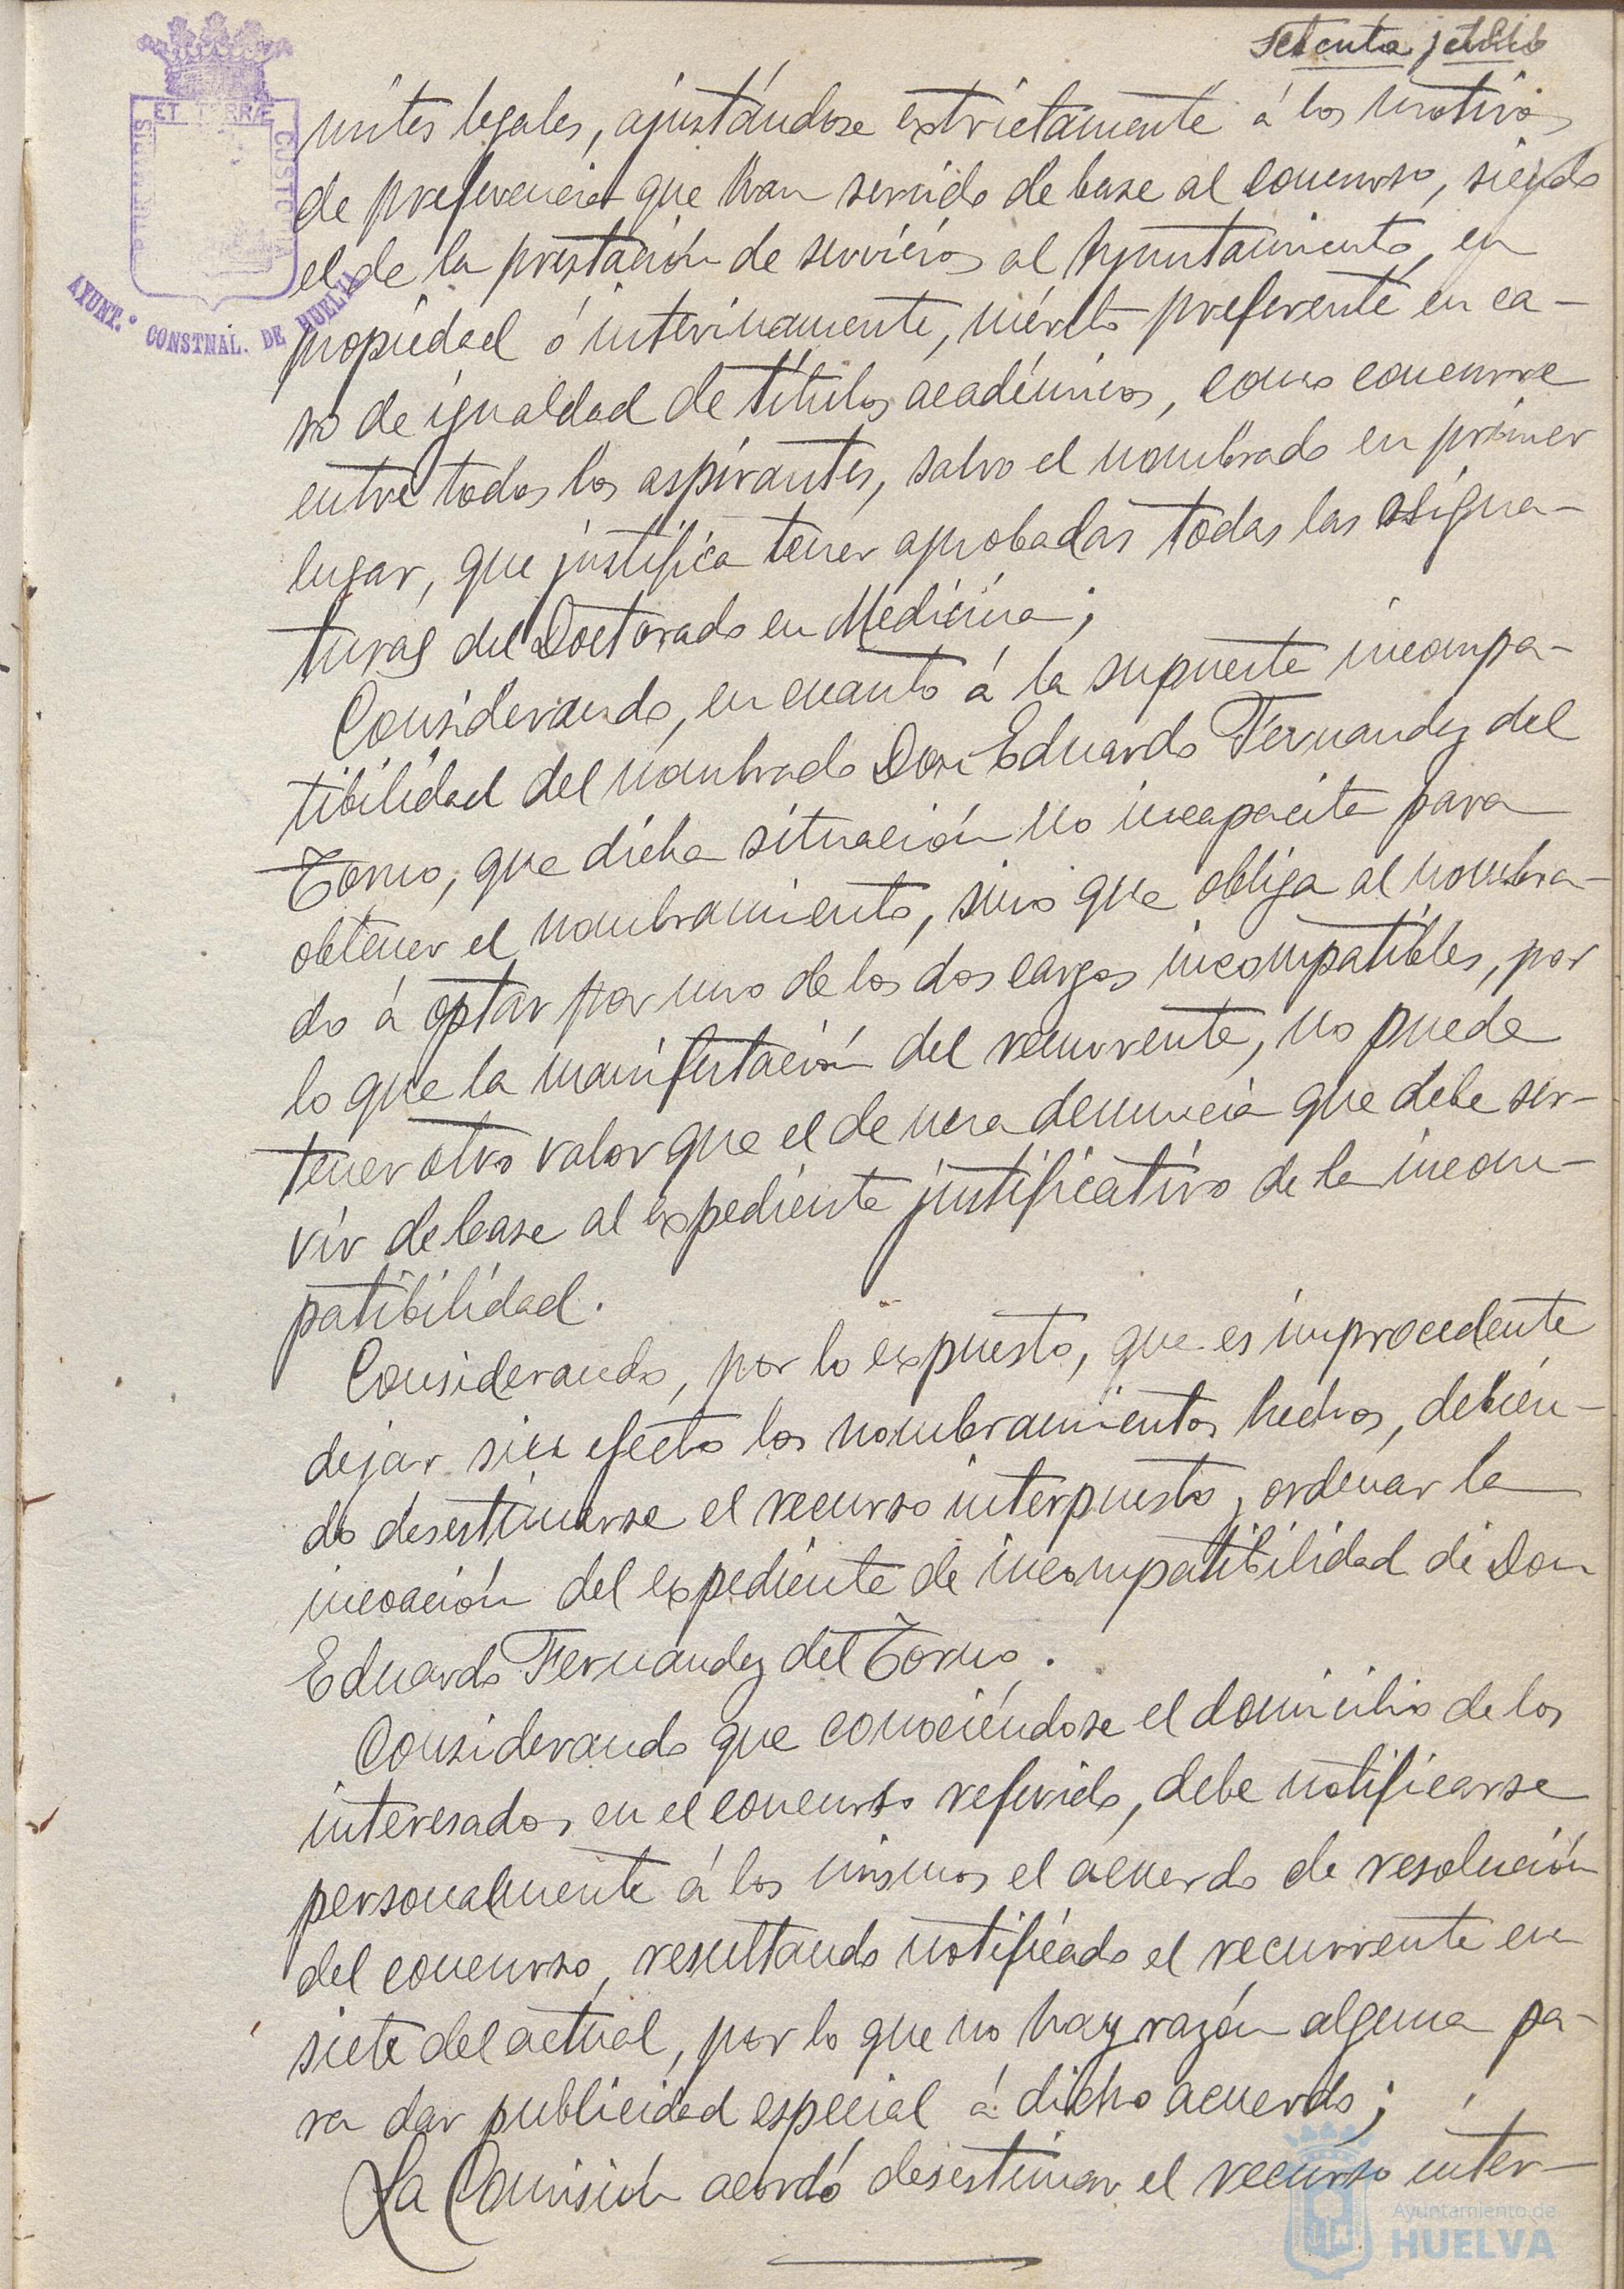 Setenta y
mites legales, ajustándose extrictamente á los motivos
de preferencia que han servido de base al concurso, siendo
el de la prestación de servicios al Ayuntamiento, en
propiedad ó interinamente, mérito preferente en ca-
so de igualdad de títulos académicos, como concurre
entre todos los aspirantes, salvo el nombrado en primer
lugar, que justifica tener aprobadas todas las asigna-
turas del Doctorado en Medicina;
Considerando, en cuanto á la supuesta incompa-
tibilidad del nombrado Don Eduardo Fernandez del
Torno, que dicha situación no incapacita para
obtener el nombramiento, sino que obliga al nombra-
do á optar por uno de los dos cargos incompatibles, por
lo que la manifestación del recurrente, no puede
tener otro valor que el de una denuncia que debe ser-
vir de base al expediente justificativo de la incom-
patibilidad.
Considerando, por lo expuesto, que es improcedente
dejar sin efecto los nombramientos hechos, debien-
do desestimarse el recurso interpuesto y ordenar la
incoación del expediente de incompatibilidad de Don
Eduardo Fernandez del Torno.
Considerando que conociéndose el domicilio de los
interesados en el concurso referido, debe notificarse
personalmente á los mismos el acuerdo de resolución
del concurso, resultando notificado el recurrente en
siete del actual, por lo que no hay razón alguna pa-
ra dar publicidad especial á dicho acuerdo;
La Comisión acordó desestimar el recurso inter-
ET TERRÆ
CUSTODIA
AYUNT.º CONSTNAL. DE HUELVA
Ayuntamiento de
HUELVA